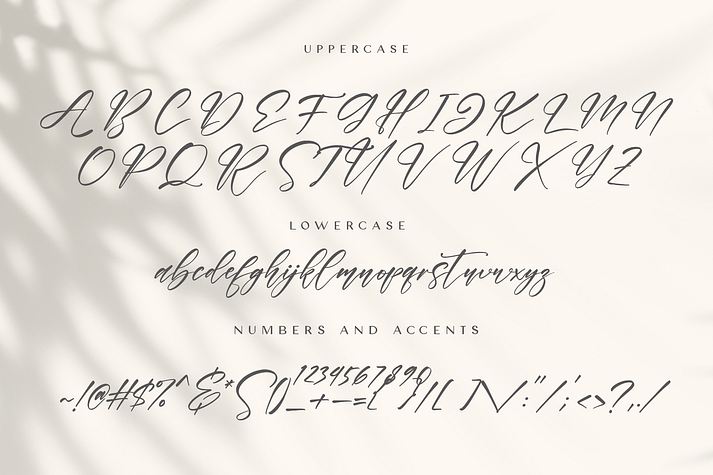 UPPERCASE
A B C D E F G H I J K L M N
O P Q R S T U V W X Y Z
LOWERCASE
abcdefghijklmnopqrstuvwxyz
NUMBERS AND ACCENTS
1234567890
~!@#$%^&*()_+-={}|[]\:"/;'<>?,./